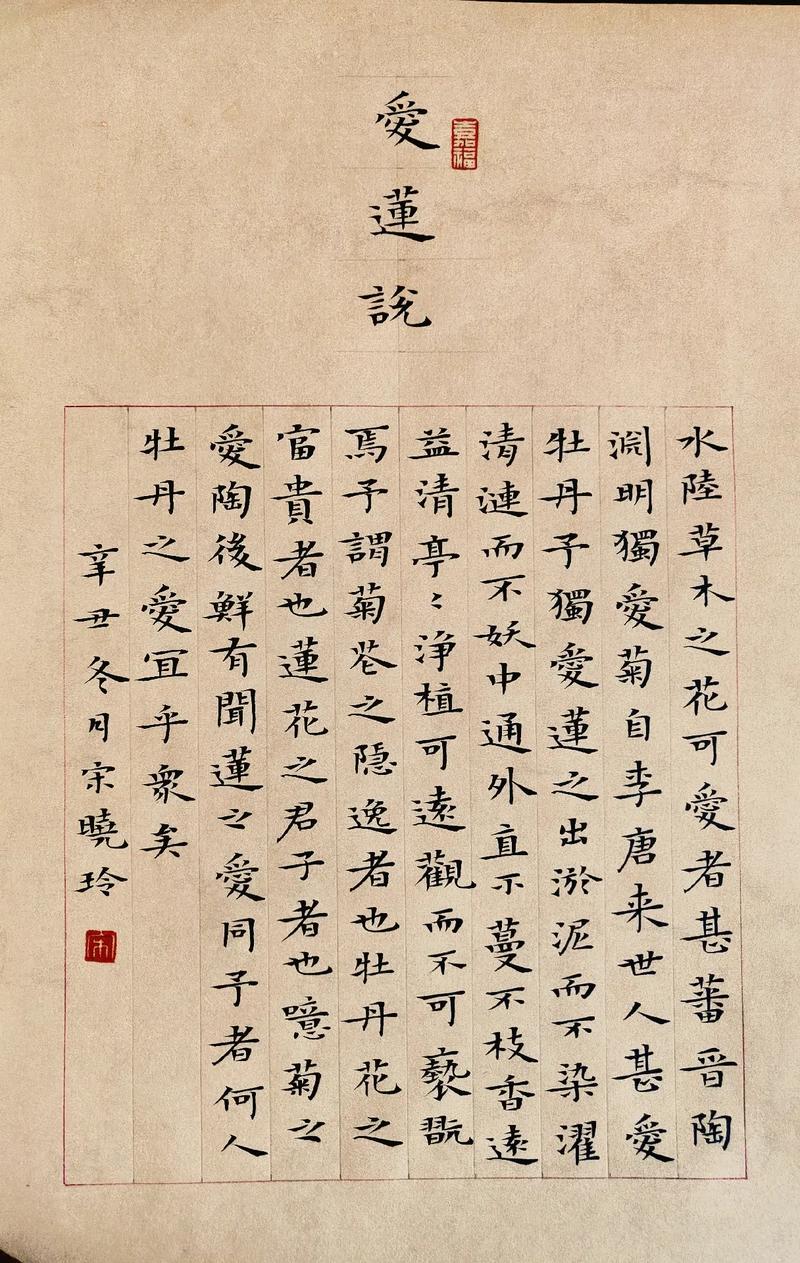 愛蓮説
嘉福
水陸草木之花可愛者甚蕃晋陶
淵明獨愛菊自李唐来世人甚愛
牡丹予獨愛蓮之出淤泥而不染濯
清漣而不妖中通外直不蔓不枝香遠
益清亭〻浄植可遠觀而不可褻翫
焉予謂菊花之隠逸者也牡丹花之
富貴者也蓮花之君子者也噫菊之
愛陶後鮮有聞蓮之愛同予者何人
牡丹之愛宜乎衆矣
辛丑冬月宋曉玲
宋